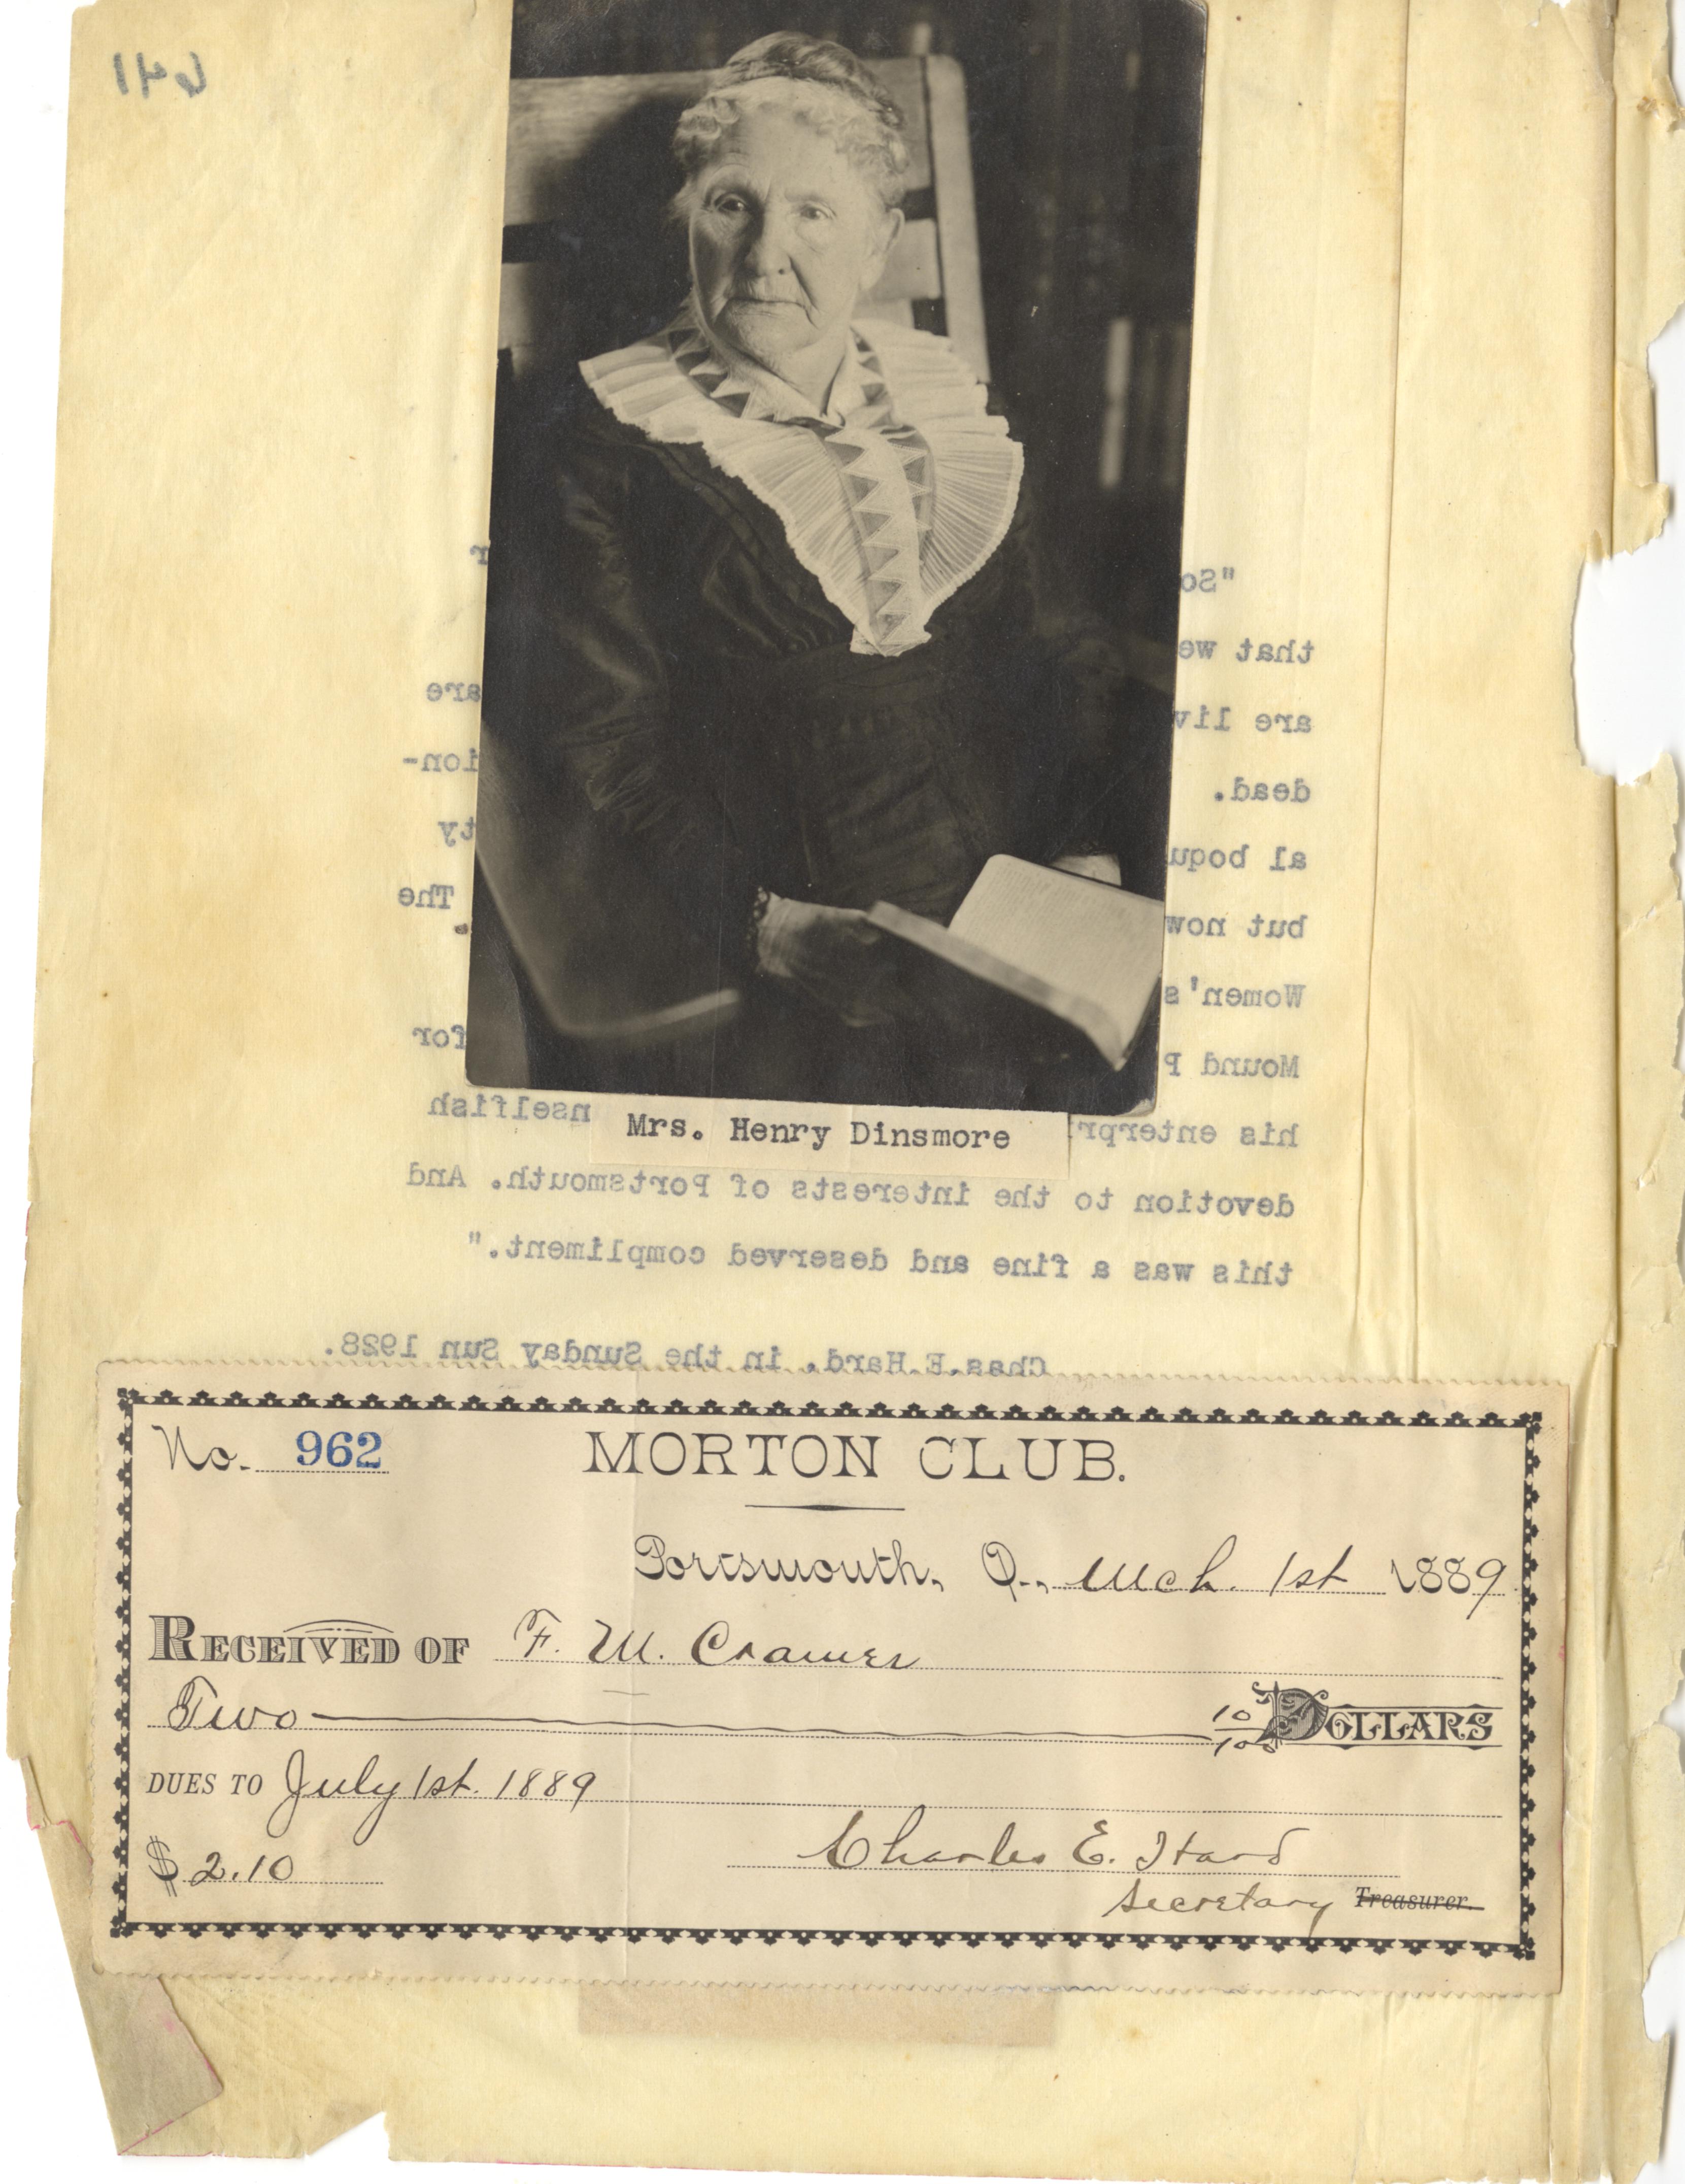 641
"So r
that we
are liv are
dead. ion-
al boqu ty
but now The
Women's
Mound P for
his enterpr nselfish
Mrs. Henry Dinsmore
devotion to the interests of Portsmouth. And
this was a fine and deserved compliment."
Chas.E.Hard. in the Sunday Sun 1928.
No. 962 MORTON CLUB.
Portsmouth, O., Mch. 1st 1889
RECEIVED OF F. M. Cramer
Two 10/100 DOLLARS
DUES TO July 1st. 1889
$ 2.10 Charles E. Hard
Secretary Treasurer.